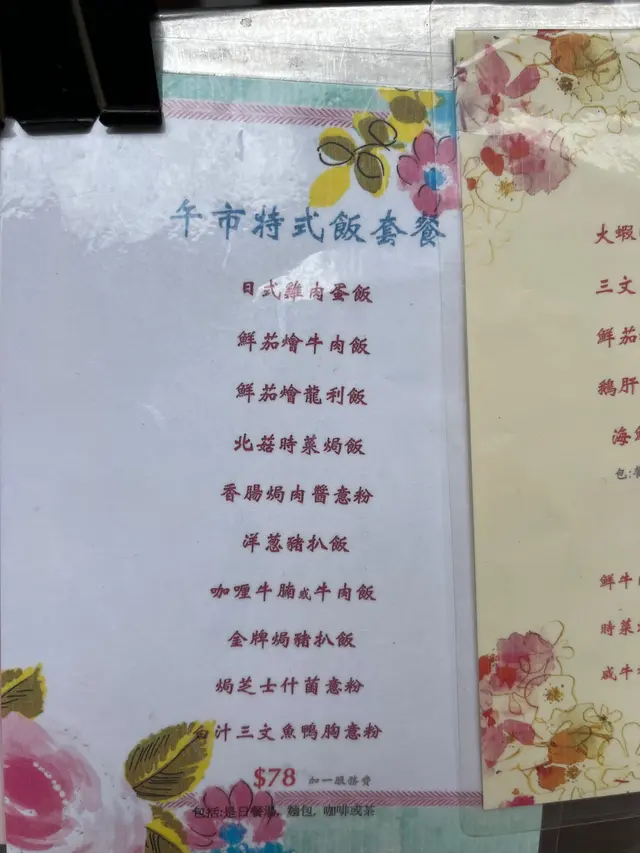 午市特式飯套餐
日式雞肉蛋飯
鮮茄燴牛肉飯
鮮茄燴龍利飯
北菇時菜焗飯
香腸焗肉醬意粉
洋葱豬扒飯
咖喱牛腩或牛肉飯
金牌焗豬扒飯
焗芝士什菌意粉
白汁三文魚鴨胸意粉
$78 加一服務費
包括:是日餐湯, 麵包, 咖啡或茶
大蝦
三文
鮮茄
鵝肝
海
包:
鮮牛
時菜
或牛